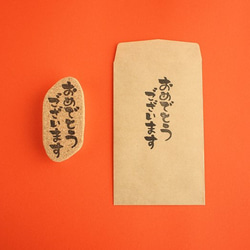 おめでとう
ございます
おめでとう
ございます